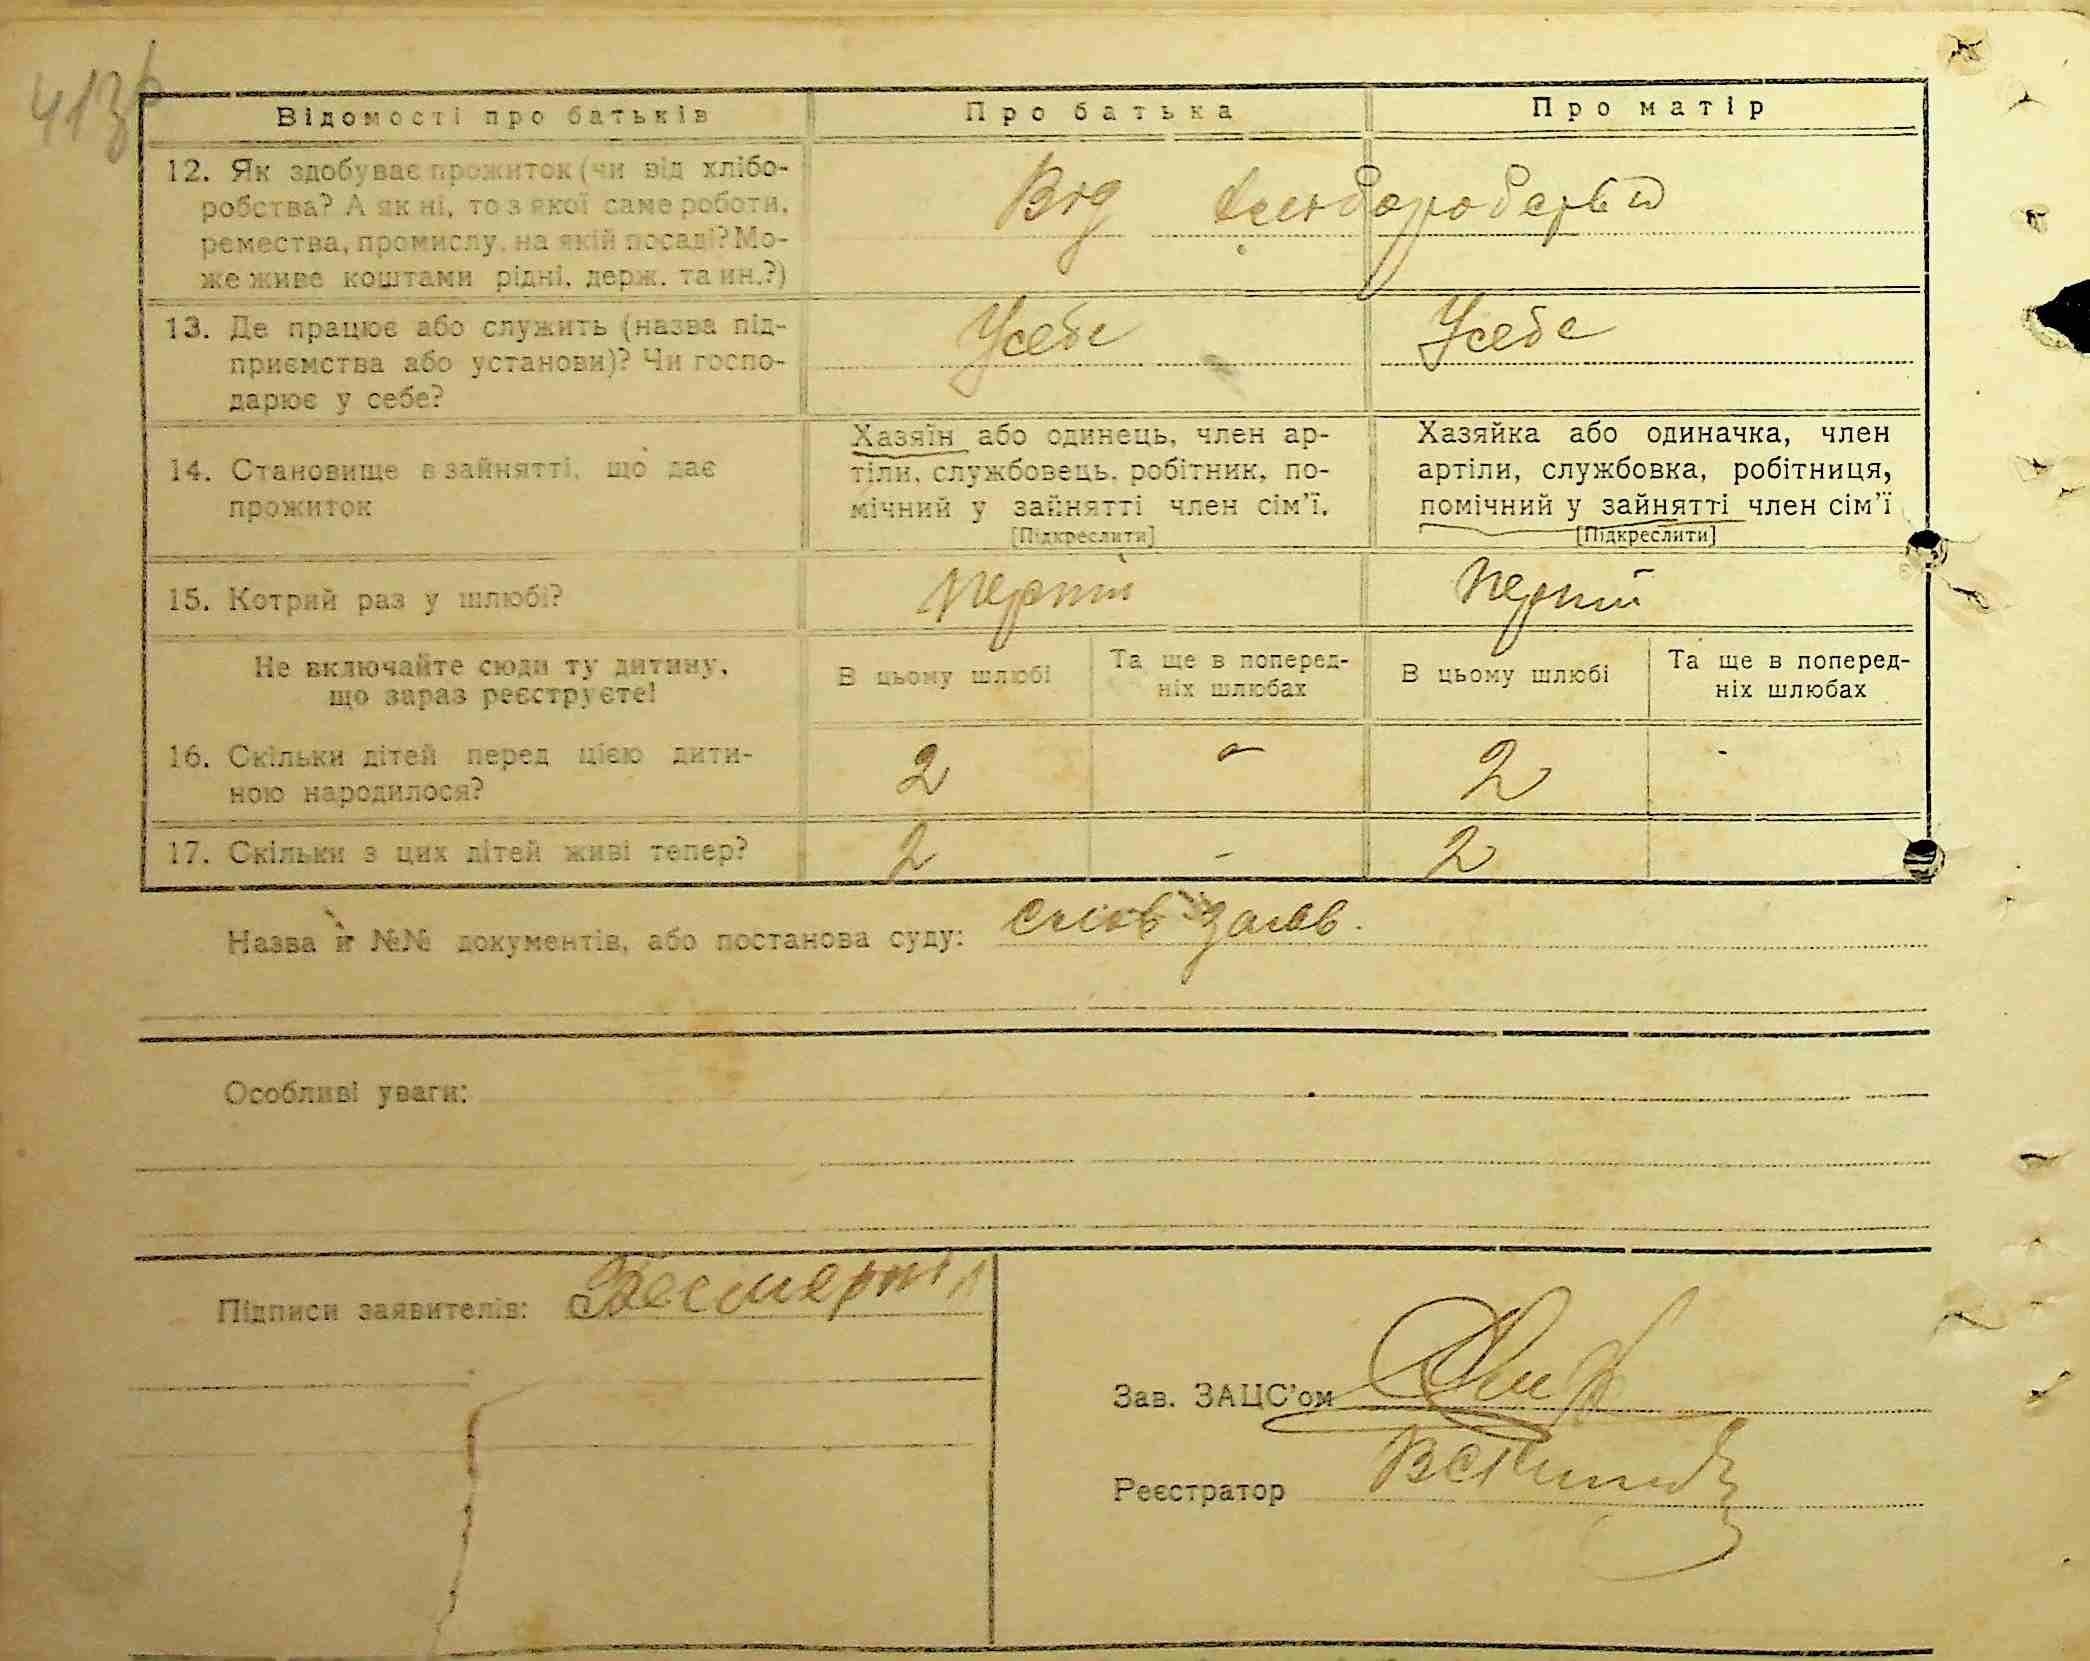 413
Відомості про батьків Про батька Про матір
12. Як здобуває прожиток (чи від хлібо-
робства? А як ні, то з якої саме роботи,
ремества, промислу, на якій посаді? Мо-
же живе коштами рідні, держ. та ин.?)
Від хліборобства
13. Де працює або служить (назва під-
приємства або установи)? Чи госпо-
дарює у себе?
Усебе Усебе
14. Становище в зайнятті, що дає
прожиток
Хазяїн або одинець, член ар-
тіли, службовець, робітник, по-
мічний у зайнятті член сім'ї.
[Підкреслити]
Хазяйка або одиначка, член
артіли, службовка, робітниця,
помічний у зайнятті член сім'ї
[Підкреслити]
15. Котрий раз у шлюбі?
Перший Перший
Не включайте сюди ту дитину,
що зараз реєструєте!
В цьому шлюбі
Та ще в поперед-
ніх шлюбах
В цьому шлюбі
Та ще в поперед-
ніх шлюбах
16. Скільки дітей перед цією дити-
ною народилося?
2 - 2 -
17. Скільки з цих дітей живі тепер?
2 - 2
Назва й №№ документів, або постанова суду:
Особливі уваги:
Підписи заявителів:
Зав. ЗАЦС'ом
Реєстратор